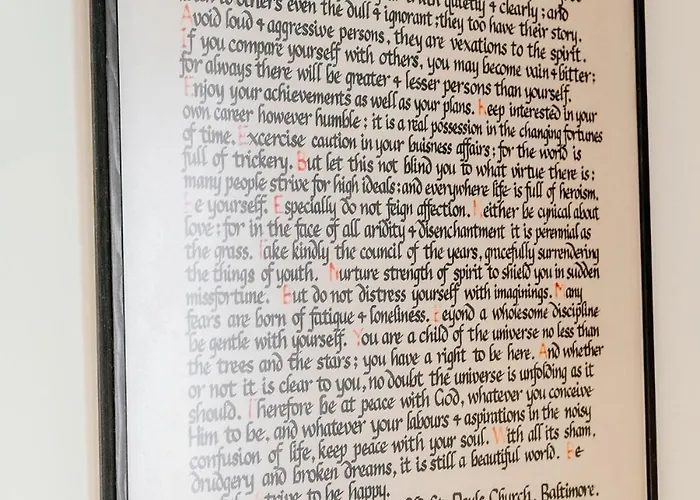 to others even the dull & ignorant; they too have their story.
Avoid loud & aggressive persons, they are vexations to the spirit.
If you compare yourself with others, you may become vain & bitter;
for always there will be greater & lesser persons than yourself.
Enjoy your achievements as well as your plans. Keep interested in your
own career however humble; it is a real possession in the changing fortunes
of time. Excercise caution in your buisness affairs; for the world is
full of trickery. But let this not blind you to what virtue there is;
many people strive for high ideals; and everywhere life is full of heroism.
Be yourself. Especially do not feign affection. Neither be cynical about
love; for in the face of all aridity & disenchantment it is perennial as
the grass. Take kindly the council of the years, gracefully surrendering
the things of youth. Nurture strength of spirit to shield you in sudden
missfortune. But do not distress yourself with imaginings. Many
fears are born of fatigue & loneliness. Beyond a wholesome discipline
be gentle with yourself. You are a child of the universe no less than
the trees and the stars; you have a right to be here. And whether
or not it is clear to you, no doubt the universe is unfolding as it
should. Therefore be at peace with God, whatever you conceive
Him to be, and whatever your labours & aspirations in the noisy
confusion of life, keep peace with your soul. With all its sham,
drudgery and broken dreams, it is still a beautiful world. Be
to be happy.
Church, Baltimore.